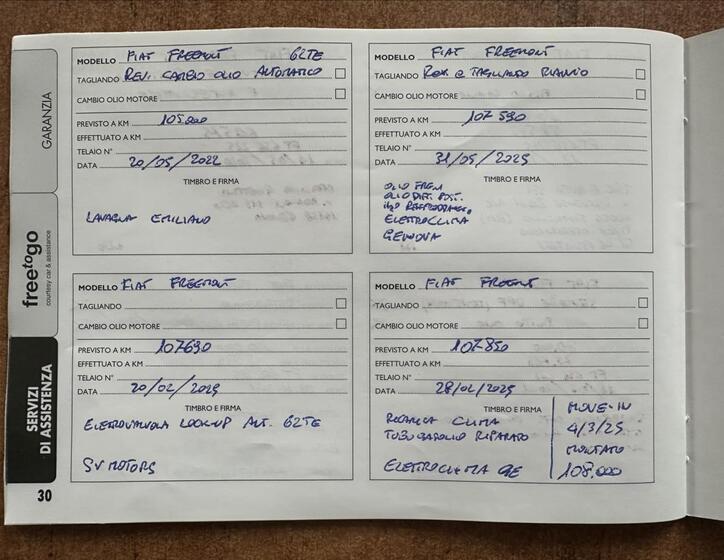 GARANZIA
freetogo
courtesy car & assistance
SERVIZI
DI ASSISTENZA
30
MODELLO FIAT FREEMONT 62TE
TAGLIANDO REV. CAMBIO OLIO AUTOMATICO
CAMBIO OLIO MOTORE
PREVISTO A KM 105.000
EFFETTUATO A KM
TELAIO N°
DATA 20/05/2022
TIMBRO E FIRMA
LAVAGNA EMILIANO
MODELLO FIAT FREEMONT
TAGLIANDO REV. E TAGLIANDO
CAMBIO OLIO MOTORE
PREVISTO A KM 107590
EFFETTUATO A KM
TELAIO N°
DATA 31/05/2025
TIMBRO E FIRMA
OLIO FRENI
OLIO DIFF. POST.
H2O
ELETTROCLIMA
GENOVA
MODELLO FIAT FREEMONT
TAGLIANDO
CAMBIO OLIO MOTORE
PREVISTO A KM 107690
EFFETTUATO A KM
TELAIO N°
DATA 20/02/2025
TIMBRO E FIRMA
ELETROVALVOLA LOCK-UP AUT. 62TE
SV MOTORS
MODELLO FIAT FREEMONT
TAGLIANDO
CAMBIO OLIO MOTORE
PREVISTO A KM 107850
EFFETTUATO A KM
TELAIO N°
DATA 28/02/2025
TIMBRO E FIRMA
RICARICA CLIMA
TUBO GASOLIO RIPARATO
ELETTROCLIMA GE
MOVE-IN
4/3/25
MONTATO
108.000